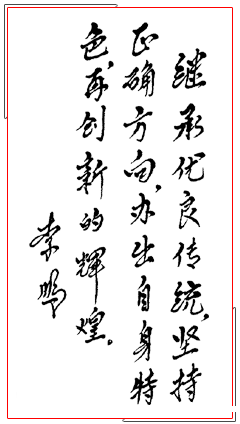 继承优良传统，坚持
正确方向，办出自身特
色，再创新的辉煌。
李鹏